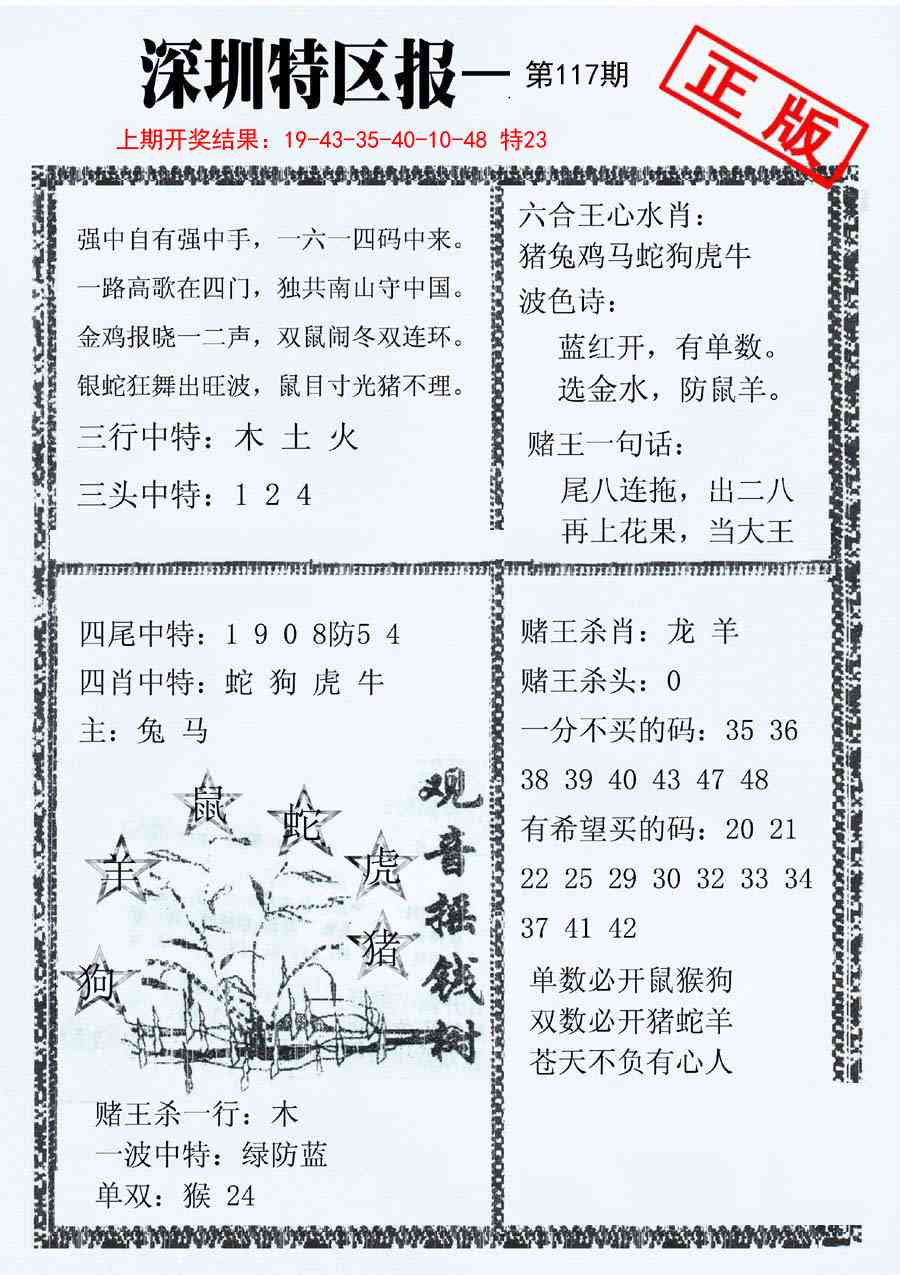 深圳特区报— 第117期
正版
上期开奖结果：19-43-35-40-10-48 特23
强中自有强中手，一六一四码中来。
一路高歌在四门，独共南山守中国。
金鸡报晓一二声，双鼠闹冬双连环。
银蛇狂舞出旺波，鼠目寸光猪不理。
三行中特：木 土 火
三头中特：1 2 4
六合王心水肖：
猪兔鸡马蛇狗虎牛
波色诗：
蓝红开，有单数。
选金水，防鼠羊。
赌王一句话：
尾八连拖，出二八
再上花果，当大王
四尾中特：1 9 0 8防5 4
四肖中特：蛇 狗 虎 牛
主：兔 马
鼠
蛇
羊
虎
猪
狗
观音摇钱树
赌王杀一行：木
一波中特：绿防蓝
单双：猴 24
赌王杀肖：龙 羊
赌王杀头：0
一分不买的码：35 36
38 39 40 43 47 48
有希望买的码：20 21
22 25 29 30 32 33 34
37 41 42
单数必开鼠猴狗
双数必开猪蛇羊
苍天不负有心人